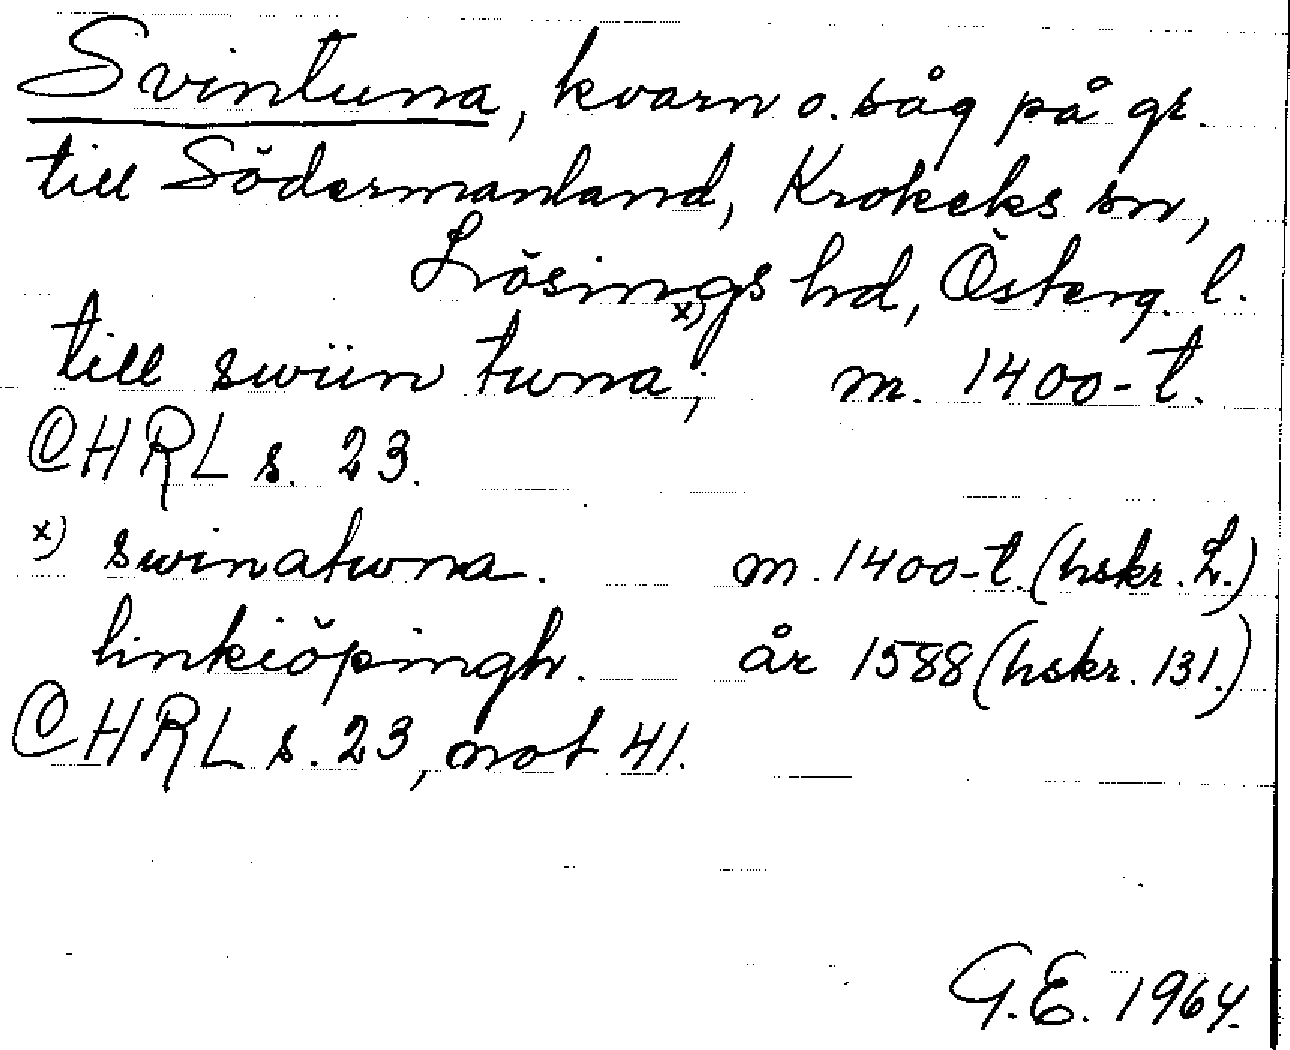 Svintuna, kvarn o. såg på gr.
till Södermanland, Krokeks sn,
Lösings hd, Österg. l.
till swiin twna;x) m. 1400-t.
CHRL s. 23.
x) swinatwna. m. 1400-t. (hskr. L.)
linkiöpingh. år 1588 (hskr. 131.)
CHRL s. 23, not 41.
G.E. 1964.